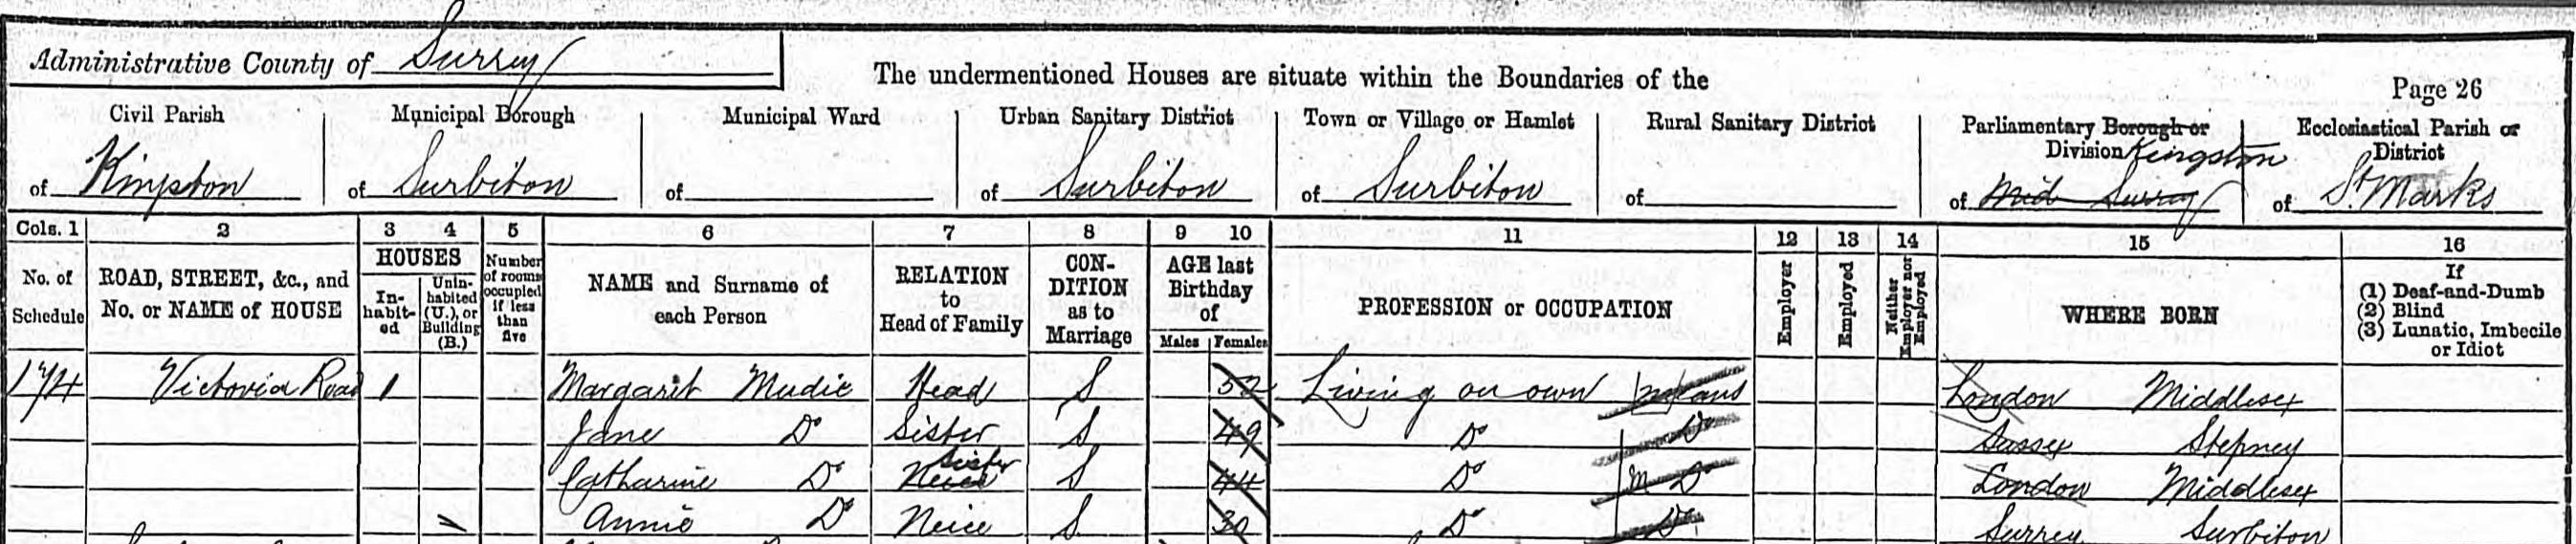 Administrative County of Surrey
The undermentioned Houses are situate within the Boundaries of the
Page 26
Civil Parish of Kingston
Municipal Borough of Surbiton
Municipal Ward of
Urban Sanitary District of Surbiton
Town or Village or Hamlet of Surbiton
Rural Sanitary District of
Parliamentary Borough or Division of Mid Surrey Kingston
Ecclesiastical Parish or District of St. Marks
Cols. 1 2 3 4 5 6 7 8 9 10 11 12 13 14 15 16
No. of Schedule
ROAD, STREET, &c., and No. or NAME of HOUSE
HOUSES
In-habit-ed
Unin-habited (U.), or Building (B.)
Number of rooms occupied if less than five
NAME and Surname of each Person
RELATION to Head of Family
CON-DITION as to Marriage
AGE last Birthday of
Males Females
PROFESSION or OCCUPATION
Employer
Employed
Neither Employer nor Employed
WHERE BORN
If
(1) Deaf-and-Dumb
(2) Blind
(3) Lunatic, Imbecile or Idiot
174 Victoria Road 1 Margaret Mudie Head S 52 Living on own means London Middlesex
Jane Do Sister S 49 Do Do Sussex Stepney
Catharine Do Neice Sister S 44 Do Do London Middlesex
Annie Do Neice S 30 Do Do Surrey Surbiton